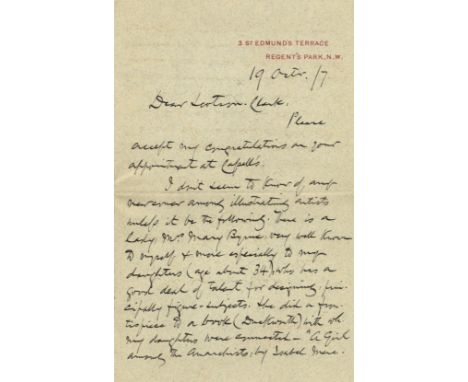 3 ST EDMUND'S TERRACE
REGENT'S PARK, N.W.
19 Octr. /7
Dear Lotson-Clark.
Please
accept my congratulations on your
appointment at Cassell's.
I don't seem to know of any
newcomer among illustrating artists
unless it be the following. There is a
lady, Mrs. Mary Byrne, very well known
to myself & more especially to my
daughters (age about 34) who has a
good deal of talent for designing, prin-
cipally figure-subjects. She did a fron-
tispiece to a book (Duckworth) with wh
my daughters were connected - "A Girl
among the Anarchists, by Isabel Mere.